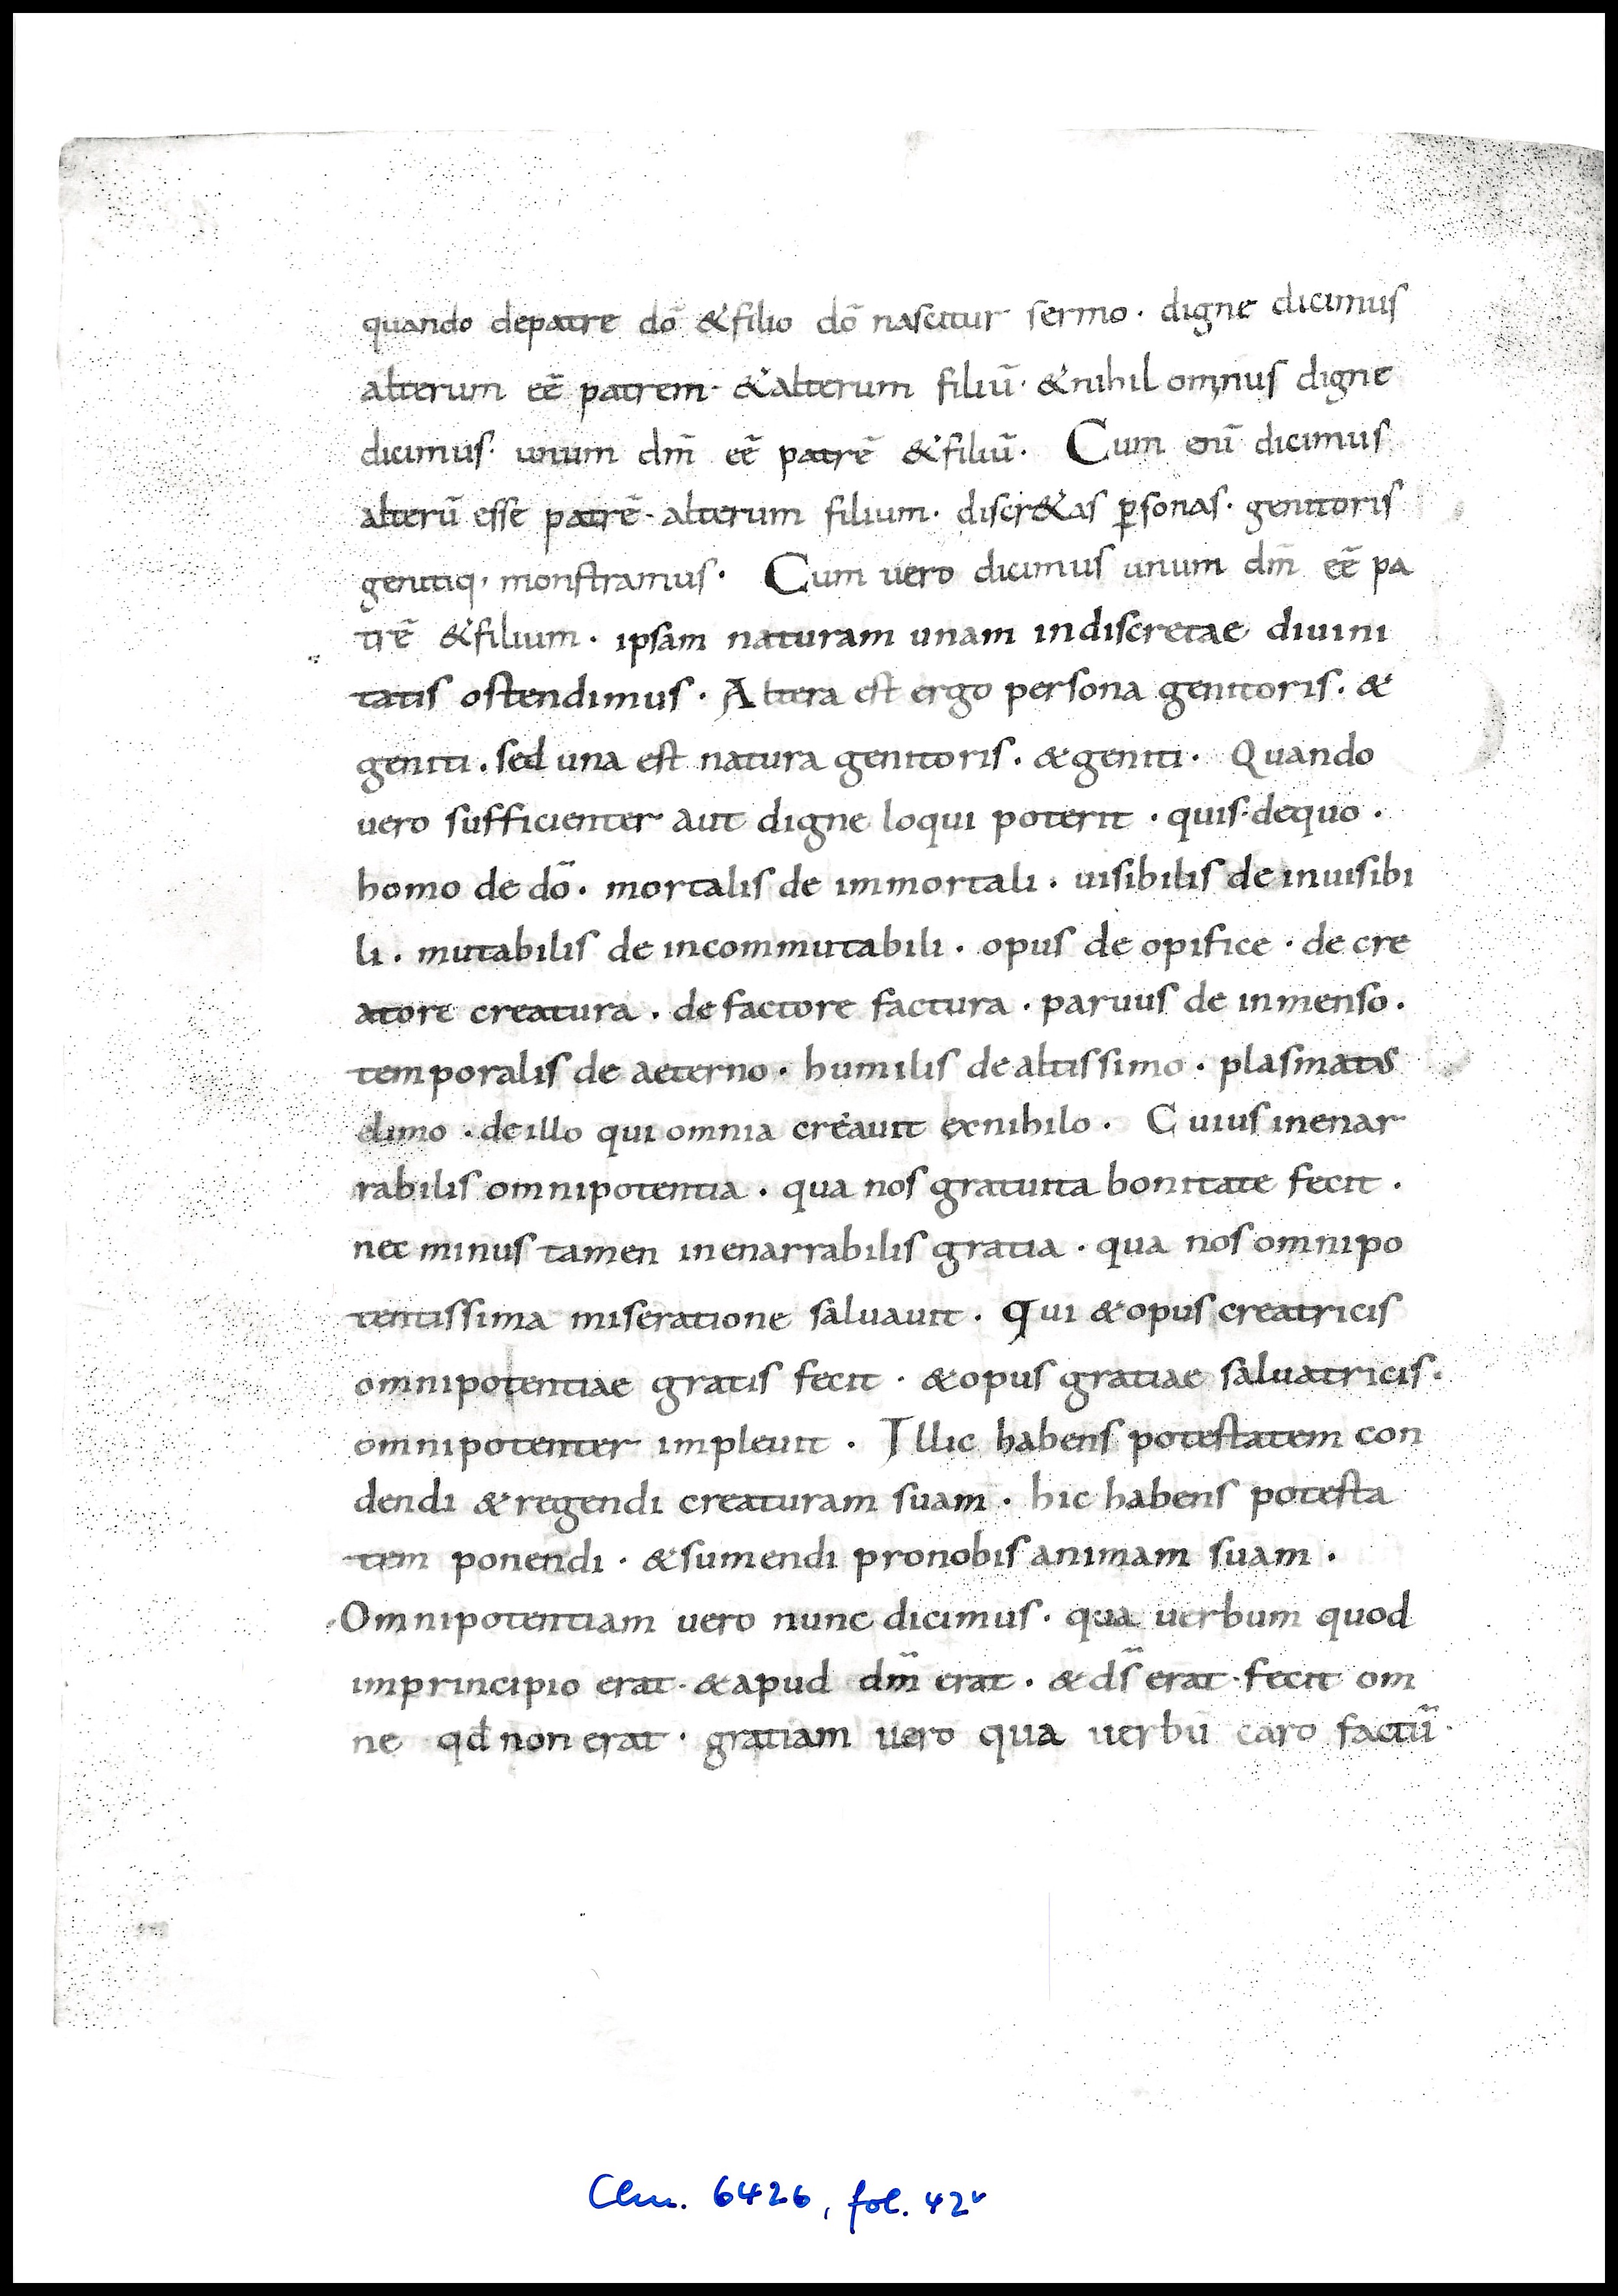 quando depatre dō &filio dō nascitur sermo · digne dicimus
alterum eē patrem · &alterum filiū · &nihil omnus digne
dicimus · unum dm̄ eē patrē &filiū · Cum enī dicimus
alterū esse patrē · alterum filium · discr&as ꝑsonas · genitoris
genitiq · monstramus · Cum uero dicimus unum dm̄ eē pa
trē &filium · ipsam naturam unam indiscretae diuini
tatis ostendimus · Altera est ergo persona genitoris · &
geniti · sed una est natura genitoris · &geniti · Quando
uero sufficienter aut digne loqui poterit · quis · dequo ·
homo de dō · mortalis de immortali · uisibilis de inuisibi
li · mutabilis de incommutabili · opus de opifice · de cre
atore creatura · de factore factura · paruus de inmenso ·
temporalis de aeterno · humilis de altissimo · plasmatus
delimo · de illo qui omnia creauit exnihilo · Cuius inenar
rabilis omnipotentia · qua nos gratuita bonitate fecit ·
nec minus tamen inenarrabilis gratia · qua nos omnipo
tentissima miseratione saluauit · Qui &opus creatricis
omnipotentiae gratis fecit · &opus gratiae saluatricis ·
omnipotenter impleuit · Illic habens potestatem con
dendi &regendi creaturam suam · hic habens potesta
tem ponendi · &sumendi pronobis animam suam ·
Omnipotentiam uero nunc dicimus · qua uerbum quod
imprincipio erat · &apud dm̄ erat · &ds̄ erat · fecit om
ne qđ non erat · gratiam uero qua uerbū caro factū ·
Clm. 6426, fol. 42v